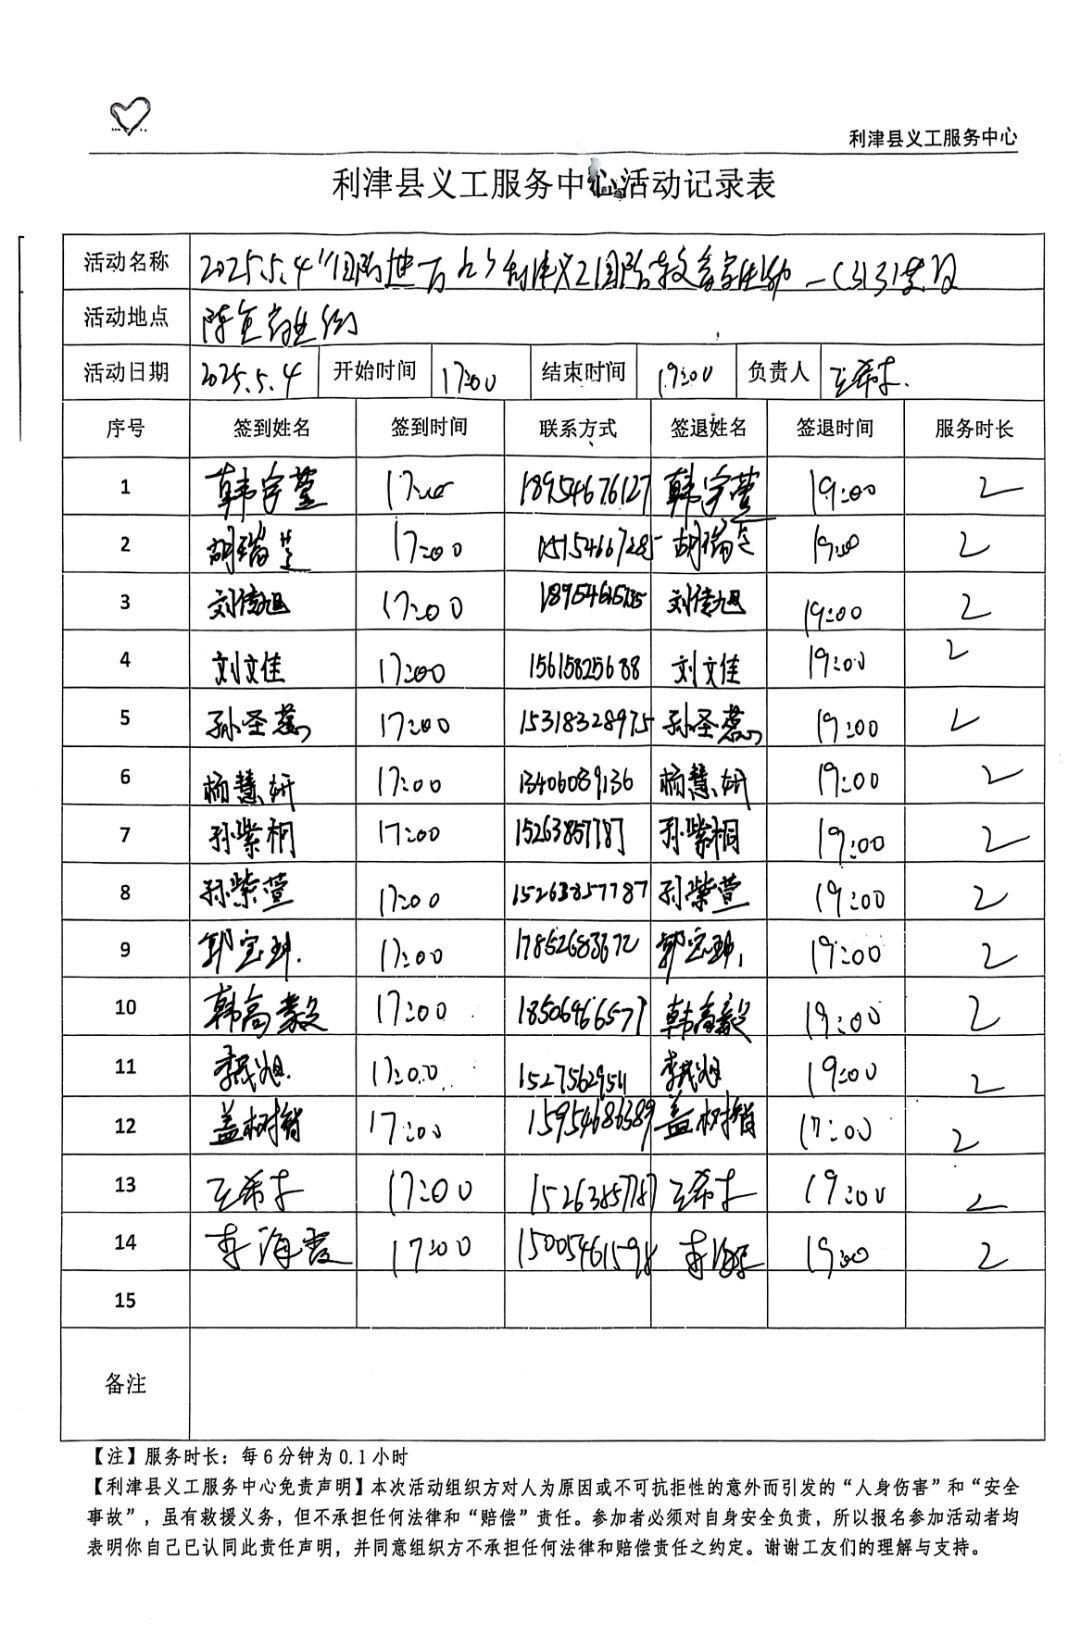 利津县义工服务中心
利津县义工服务中心活动记录表
活动名称 2025.5.4
活动地点
活动日期 2025.5.4 开始时间 17:00 结束时间 19:00 负责人 王希
序号 签到姓名 签到时间 联系方式 签退姓名 签退时间 服务时长
1 韩宇萱 17:00 18954676127 韩宇萱 19:00 2
2 胡瑞芝 17:00 胡瑞芝 19:00 2
3 刘倩旭 17:00 刘倩旭 19:00 2
4 刘文佳 17:00 15615825688 刘文佳 19:00 2
5 孙圣蕊 17:00 15318328975 孙圣蕊 19:00 2
6 杨慧妍 17:00 13406089136 杨慧妍 19:00 2
7 孙紫桐 17:00 15263857787 孙紫桐 19:00 2
8 孙紫萱 17:00 15263857787 孙紫萱 19:00 2
9 郭宝琳 17:00 17852683672 郭宝琳 19:00 2
10 韩高毅 17:00 18506466577 韩高毅 19:00 2
11 17:00 19:00 2
12 盖树 17:00 15954686389 盖树 17:00 2
13 王希 17:00 15263857787 王希 19:00 2
14 李海霞 17:00 15005461598 李海霞 19:00 2
15
备注
【注】服务时长：每6分钟为0.1小时
【利津县义工服务中心免责声明】本次活动组织方对人为原因或不可抗拒性的意外而引发的“人身伤害”和“安全
事故”，虽有救援义务，但不承担任何法律和“赔偿”责任。参加者必须对自身安全负责，所以报名参加活动者均
表明你自己已认同此责任声明，并同意组织方不承担任何法律和赔偿责任之约定。谢谢工友们的理解与支持。